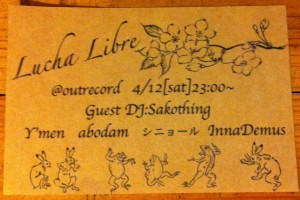 Lucha Libre
@outrecord 4/12[sat]23:00~
Guest DJ:Sakothing
Y'men abodam シニョール InnaDemus